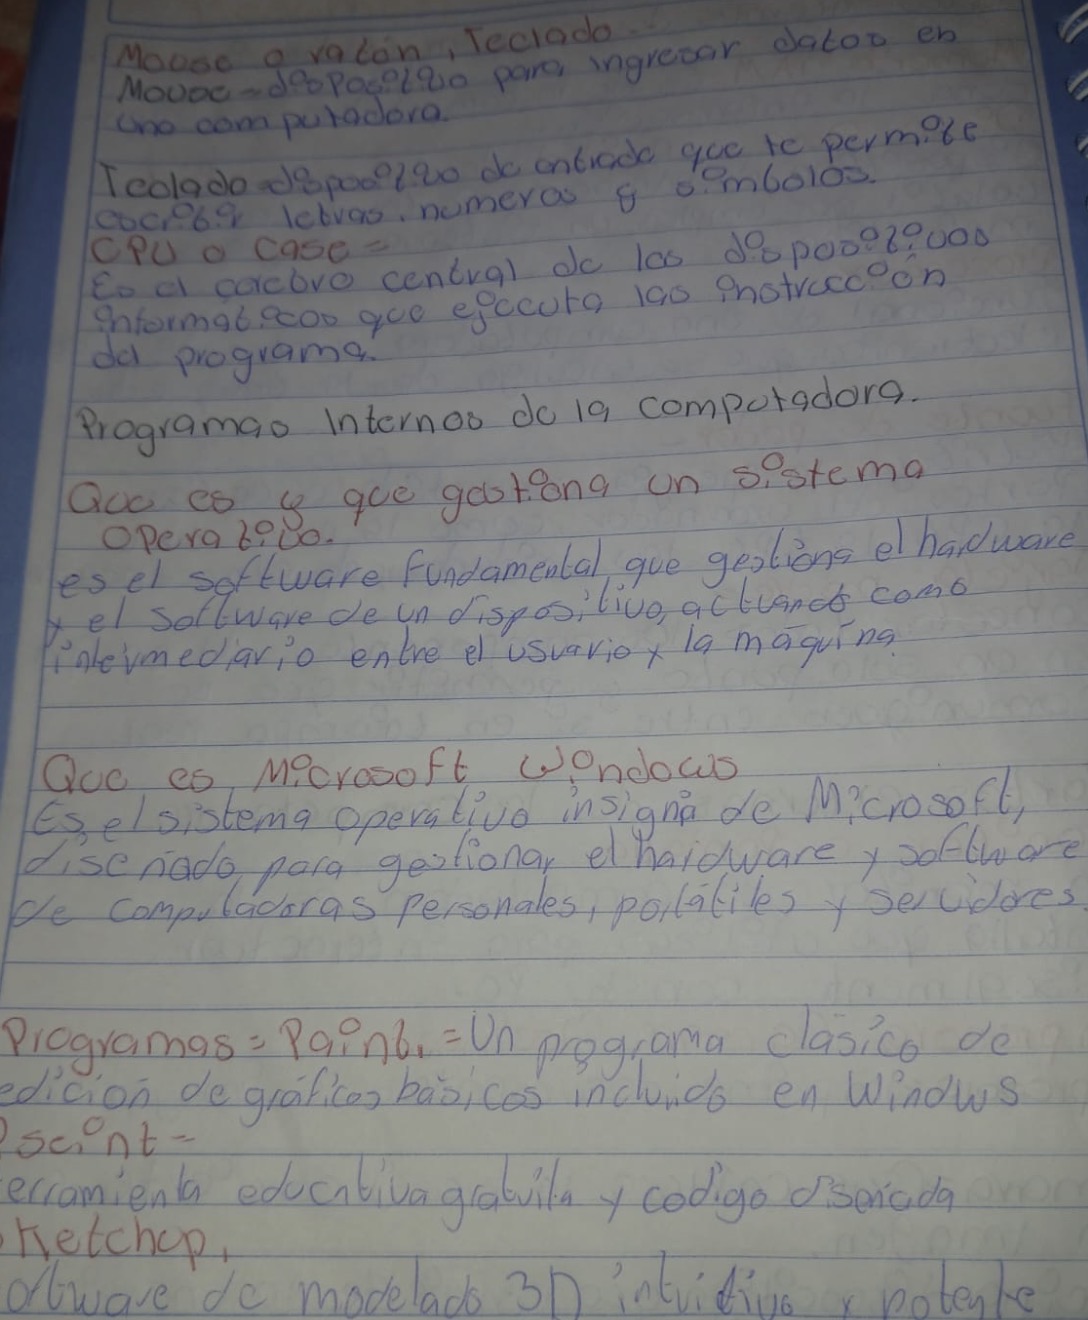 Mouse o ratón, Teclado.
Mouse - dispositivo para ingresar datos en
una computadora.
Teclado - dispositivo de entrada que te permite
escribir letras, numeros y simbolos.
CPU o Case =
Es el cerebro central de los dispositivos
informaticos que ejecuta las instrucción
del programa.
Programas Internos de la computadora.
Que es y que gestiona un sistema
operativo.
es el software fundamental que gestiona el hardware
y el software de un dispositivo, actuando como
intermediario entre el usuario y la máquina
Que es Microsoft Windows
Es el sistema operativo insignia de Microsoft,
diseñado para gestionar el hardware y software
de computadoras personales, portátiles y servidores.
Programas = Paint. = Un programa clásico de
edición de gráficos básicos incluido en Windws
Pseint =
erramienta educativa gratuita y codigo diseñada
Ketchup,
oftware de modelado 3D intuitivo y potente